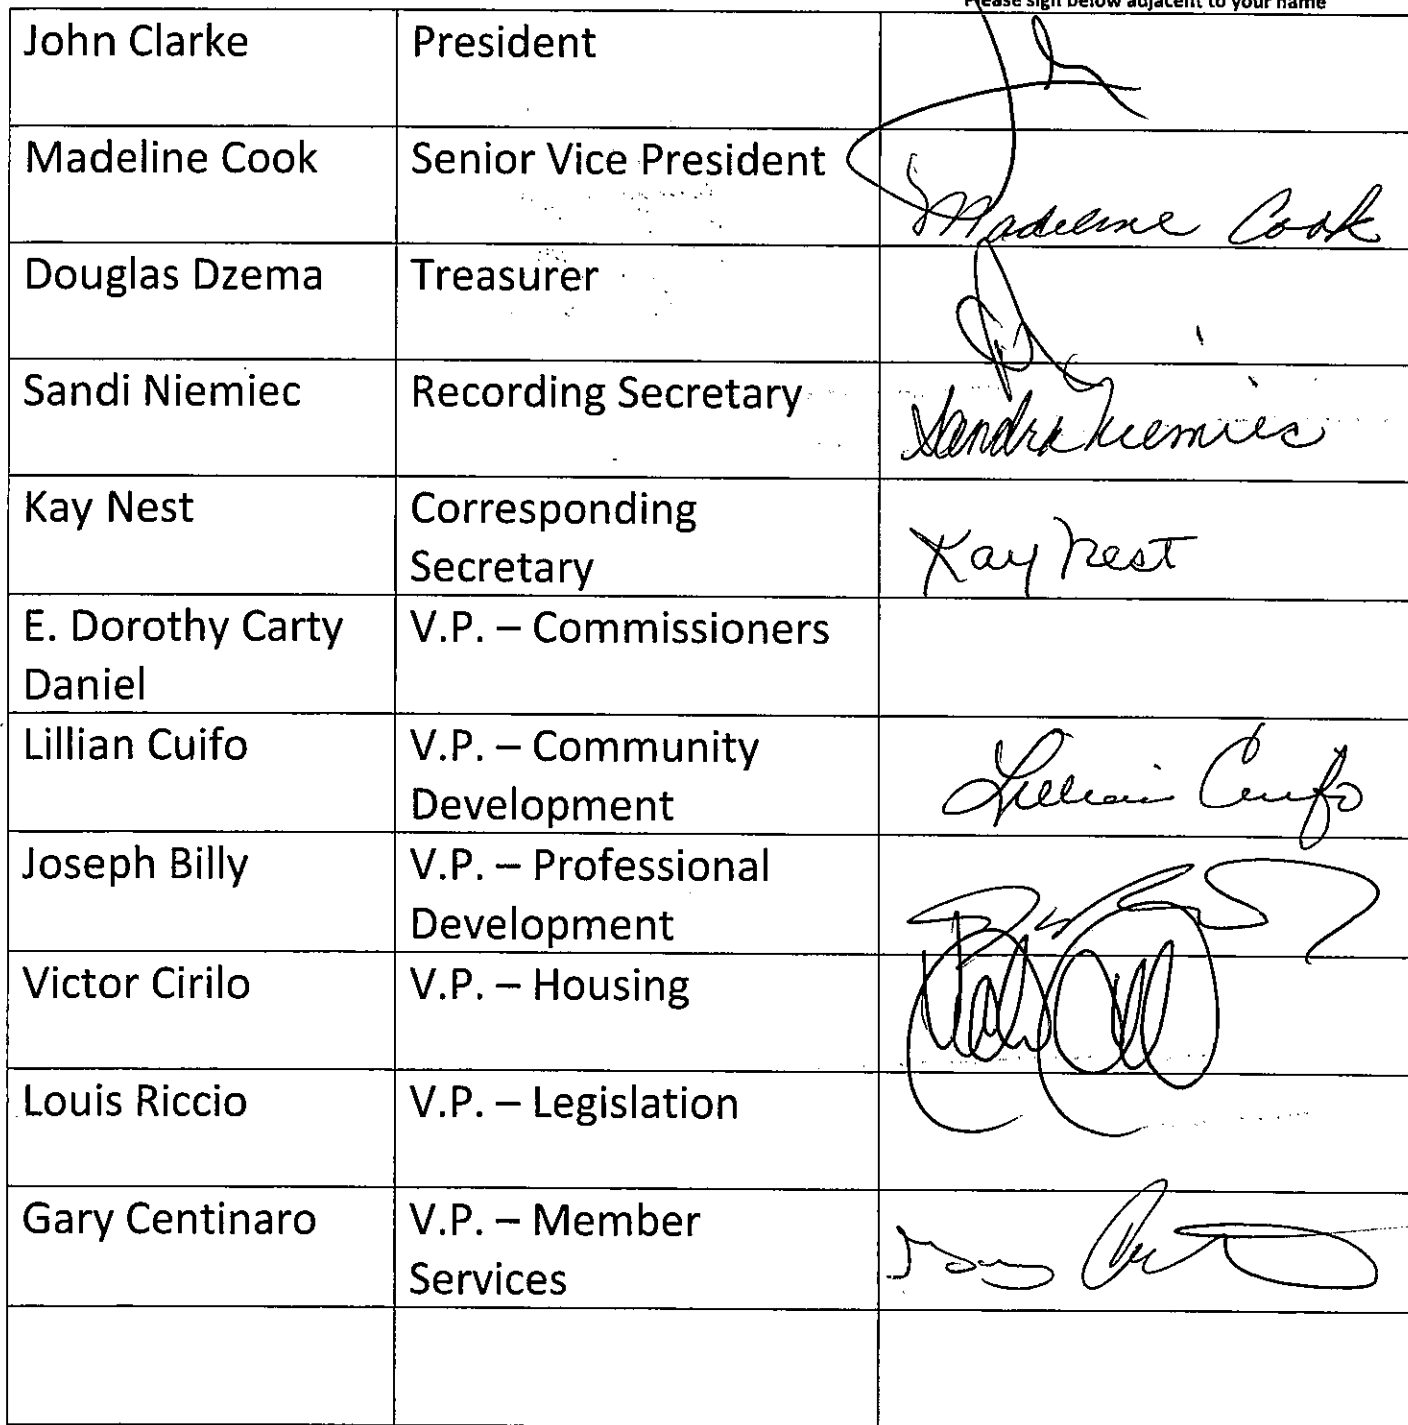 Please sign below adjacent to your name
John Clarke President
Madeline Cook Senior Vice President Madeline Cook
Douglas Dzema Treasurer
Sandi Niemiec Recording Secretary Sandra Niemiec
Kay Nest Corresponding Secretary Kay Nest
E. Dorothy Carty Daniel V.P. – Commissioners
Lillian Cuifo V.P. – Community Development Lillian Cuifo
Joseph Billy V.P. – Professional Development
Victor Cirilo V.P. – Housing
Louis Riccio V.P. – Legislation
Gary Centinaro V.P. – Member Services Gary